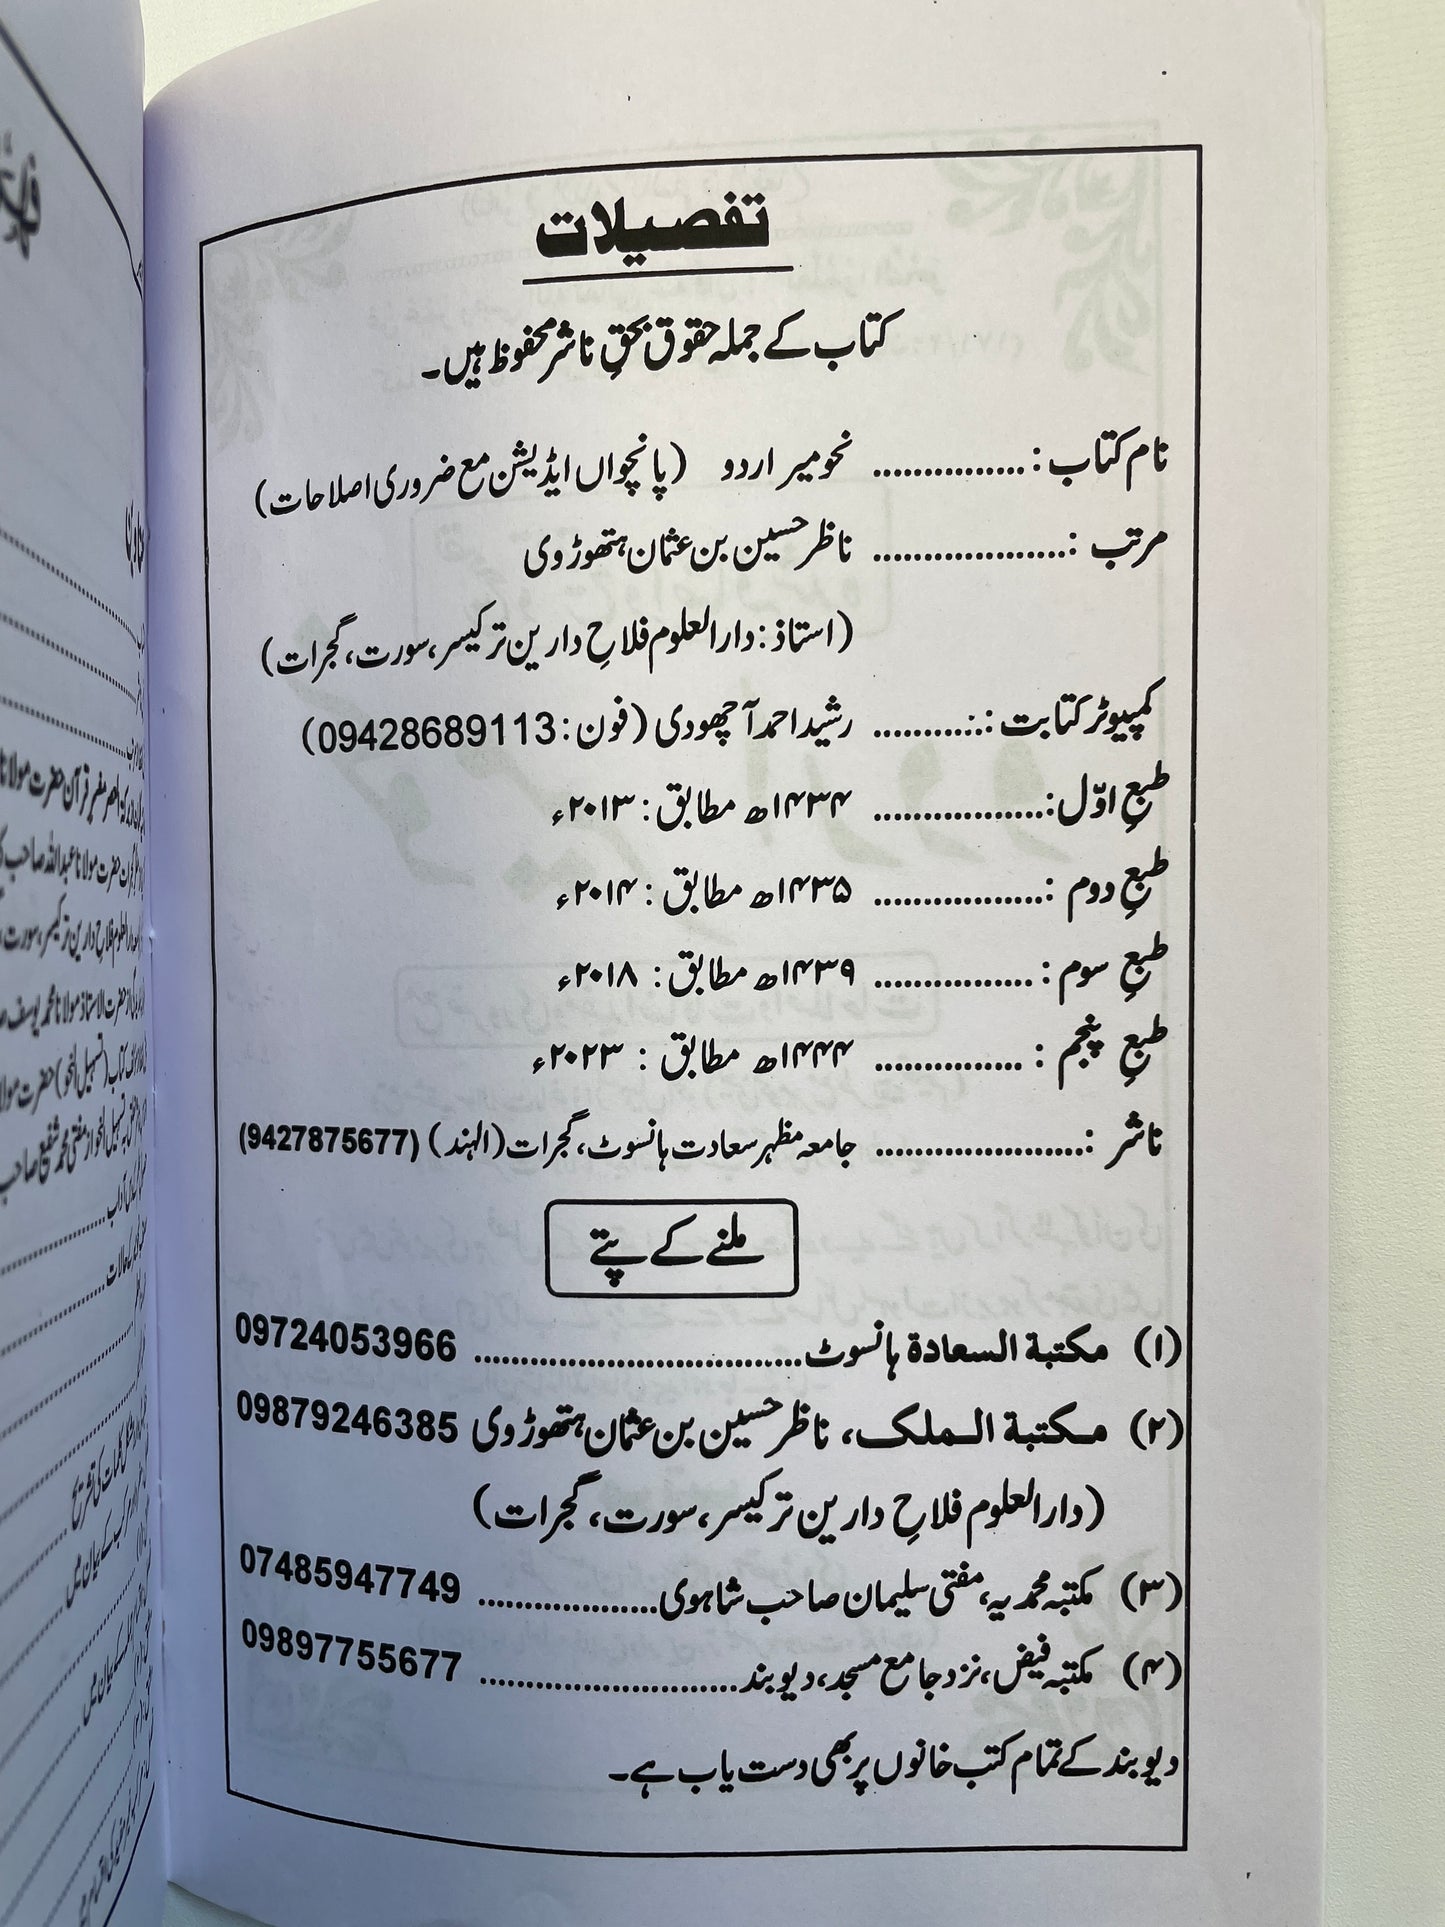 تفصیلات
کتاب کے جملہ حقوق بحقِ ناشر محفوظ ہیں۔
نام کتاب : ............... نحو میر اردو (پانچواں ایڈیشن مع ضروری اصلاحات)
مرتب :................... ناظر حسین بن عثمان ہتھوڑوی
(استاذ: دارالعلوم فلاحِ دارین ترکیسر، سورت، گجرات)
کمپیوٹر کتابت :.......... رشید احمد آچھودی (فون: 09428689113)
طبعِ اوّل:................. ۱۴۳۴ھ مطابق : ۲۰۱۳ء
طبعِ دوم :................. ۱۴۳۵ھ مطابق : ۲۰۱۴ء
طبعِ سوم : ................ ۱۴۳۹ھ مطابق : ۲۰۱۸ء
طبعِ پنجم : ............... ۱۴۴۴ھ مطابق : ۲۰۲۳ء
ناشر :..................... جامعہ مظہر سعادت ہانسوٹ، گجرات (الہند) (9427875677)
ملنے کے پتے
(۱) مکتبة السعادة ہانسوٹ................................... 09724053966
(۲) مکتبة الملک، ناظر حسین بن عثمان ہتھوڑوی 09879246385
(دارالعلوم فلاحِ دارین ترکیسر، سورت، گجرات)
(۳) مکتبہ محمدیہ، مفتی سلیمان صاحب شاہوی................... 07485947749
(۴) مکتبہ فیض، نزد جامع مسجد، دیوبند........................... 09897755677
دیوبند کے تمام کتب خانوں پر بھی دست یاب ہے۔